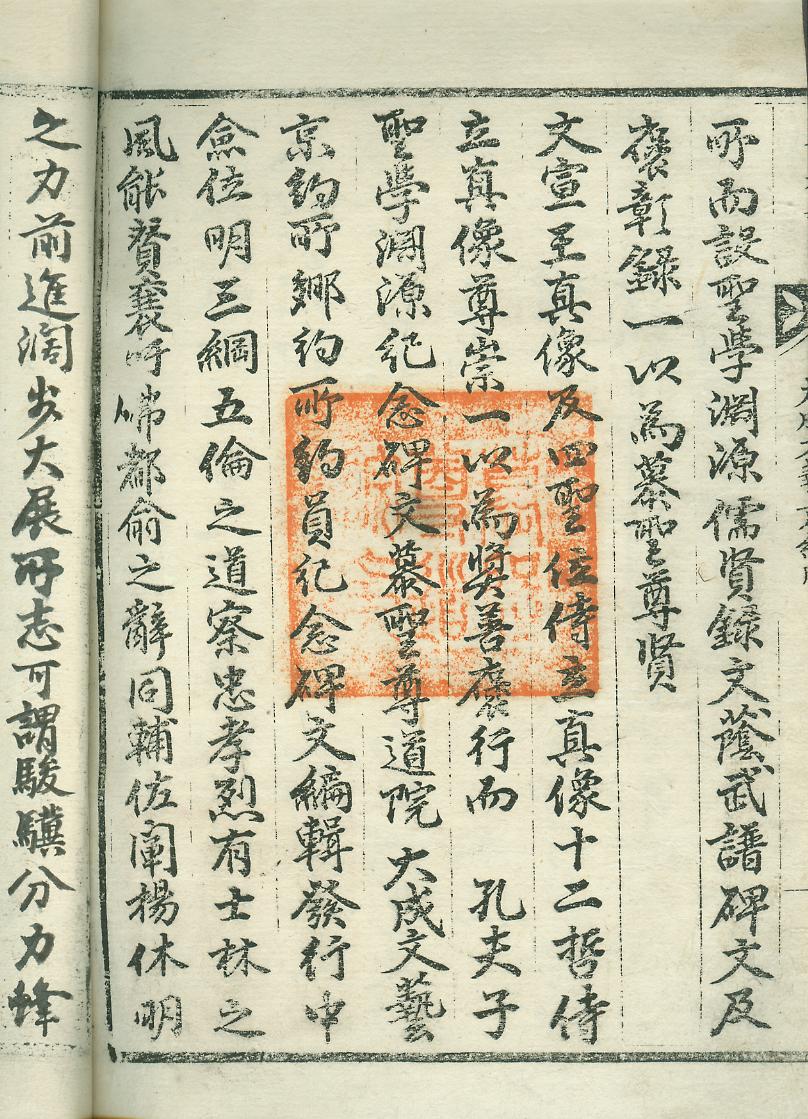 所而設聖學淵源儒賢錄文蔭武譜碑文及
褒彰錄一以為慕聖尊賢
文宣王真像及四聖位侍立真像十二哲侍
立真像尊崇一以為奬善褒行而 孔夫子
聖學淵源紀念碑文慕聖尊道院 大成文藝
京約所鄉約所約員紀念碑文編輯發行中
僉位明三綱五倫之道察忠孝烈有士林之
風能贊襄吁咈都俞之辭同輔佐闡揚休明
之力前進濶步大展所志可謂駿驥分力蜂